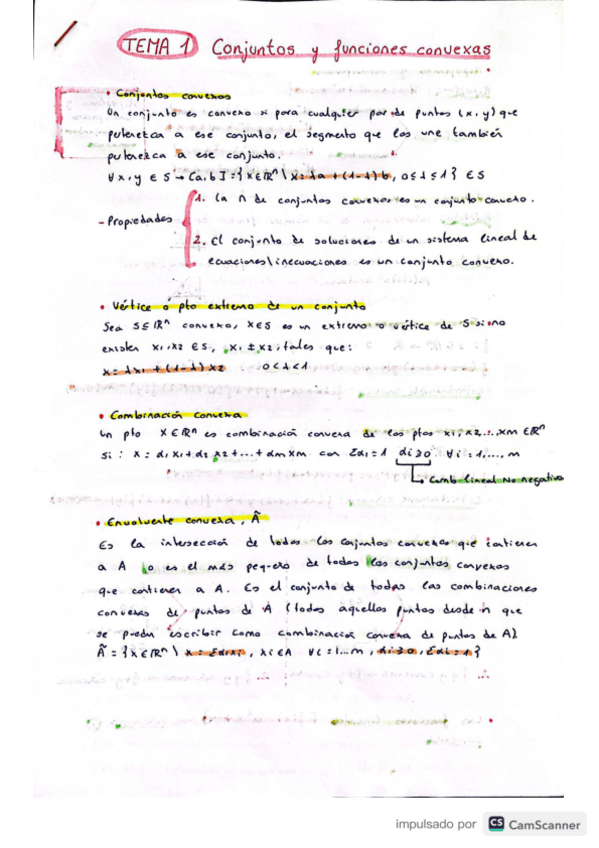 TEMA 1 Conjuntos y funciones convexas
• Conjuntos convexos
Un conjunto es convexo si para cualquier par de puntos (x, y) que
pertenezca a ese conjunto, el segmento que los une también
pertenezca a ese conjunto.
∀x, y ∈ S → [a, b] = {x∈ℝⁿ \ x = λa + (1-λ)b, 0≤λ≤1} ∈ S
- Propiedades
1. La ∩ de conjuntos convexos es un conjunto convexo.
2. El conjunto de soluciones de un sistema lineal de
ecuaciones\inecuaciones es un conjunto convexo.
• Vértice o pto extremo de un conjunto
Sea S⊆ℝⁿ convexo, x∈S es un extremo o vértice de S si no
existen x1, x2 ∈ S, x1 ≠ x2, tales que:
x = λx1 + (1-λ)x2 0<λ<1
• Combinación convexa
Un pto x∈ℝⁿ es combinación convexa de los ptos x1, x2, ..., xm ∈ℝⁿ
si: x = α1x1 + α2x2 + ... + αmxm con Σαi = 1 αi≥0 ∀i = 1, ..., m
↳ Comb lineal No negativa
• Envolvente convexa, Ã
Es la intersección de todos los conjuntos convexos que contienen
a A o es el más pequeño de todos los conjuntos convexos
que contienen a A. Es el conjunto de todas las combinaciones
convexas de puntos de A (todos aquellos puntos desde n que
se pueden escribir como combinación convexa de puntos de A)
Ã = {x∈ℝⁿ \ x = Σαixi, xi∈A ∀i = 1...m, αi≥0, Σαi = 1}
impulsado por CS CamScanner